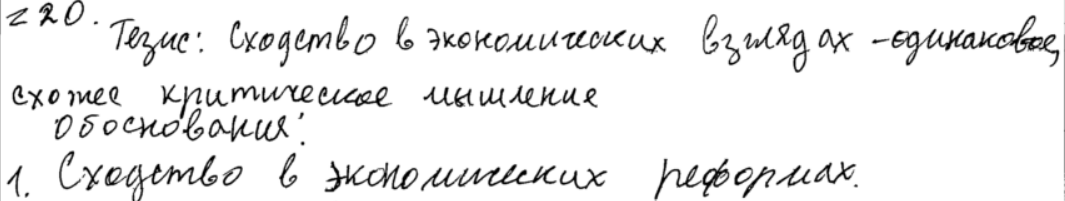 z 20.
Тезис: Сходство в экономических взглядах - одинаковое,
схожее критическое мышление
Обоснования:
1. Сходство в экономических реформах.